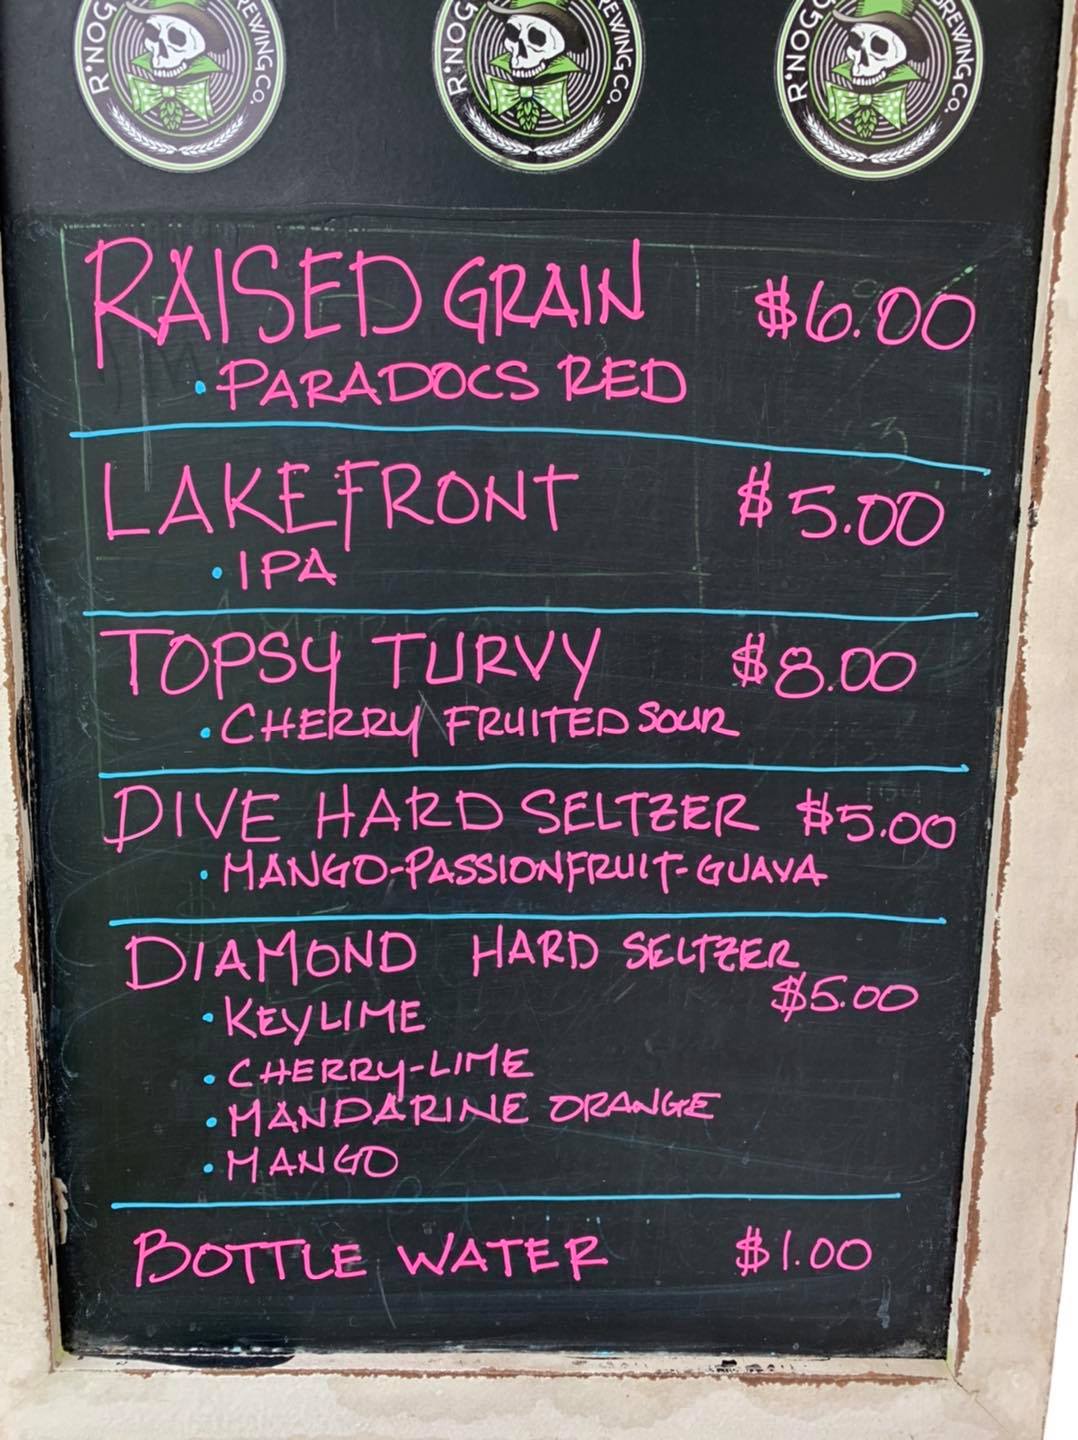 R'NOGG BREWING CO.
R'NOGG BREWING CO.
R'NOGG BREWING CO.
RAISED GRAIN $6.00
• PARADOCS RED
LAKEFRONT $5.00
• IPA
TOPSY TURVY $8.00
• CHERRY FRUITED SOUR
DIVE HARD SELTZER $5.00
• MANGO-PASSIONFRUIT-GUAVA
DIAMOND HARD SELTZER
$5.00
• KEYLIME
• CHERRY-LIME
• MANDARINE ORANGE
• MANGO
BOTTLE WATER $1.00